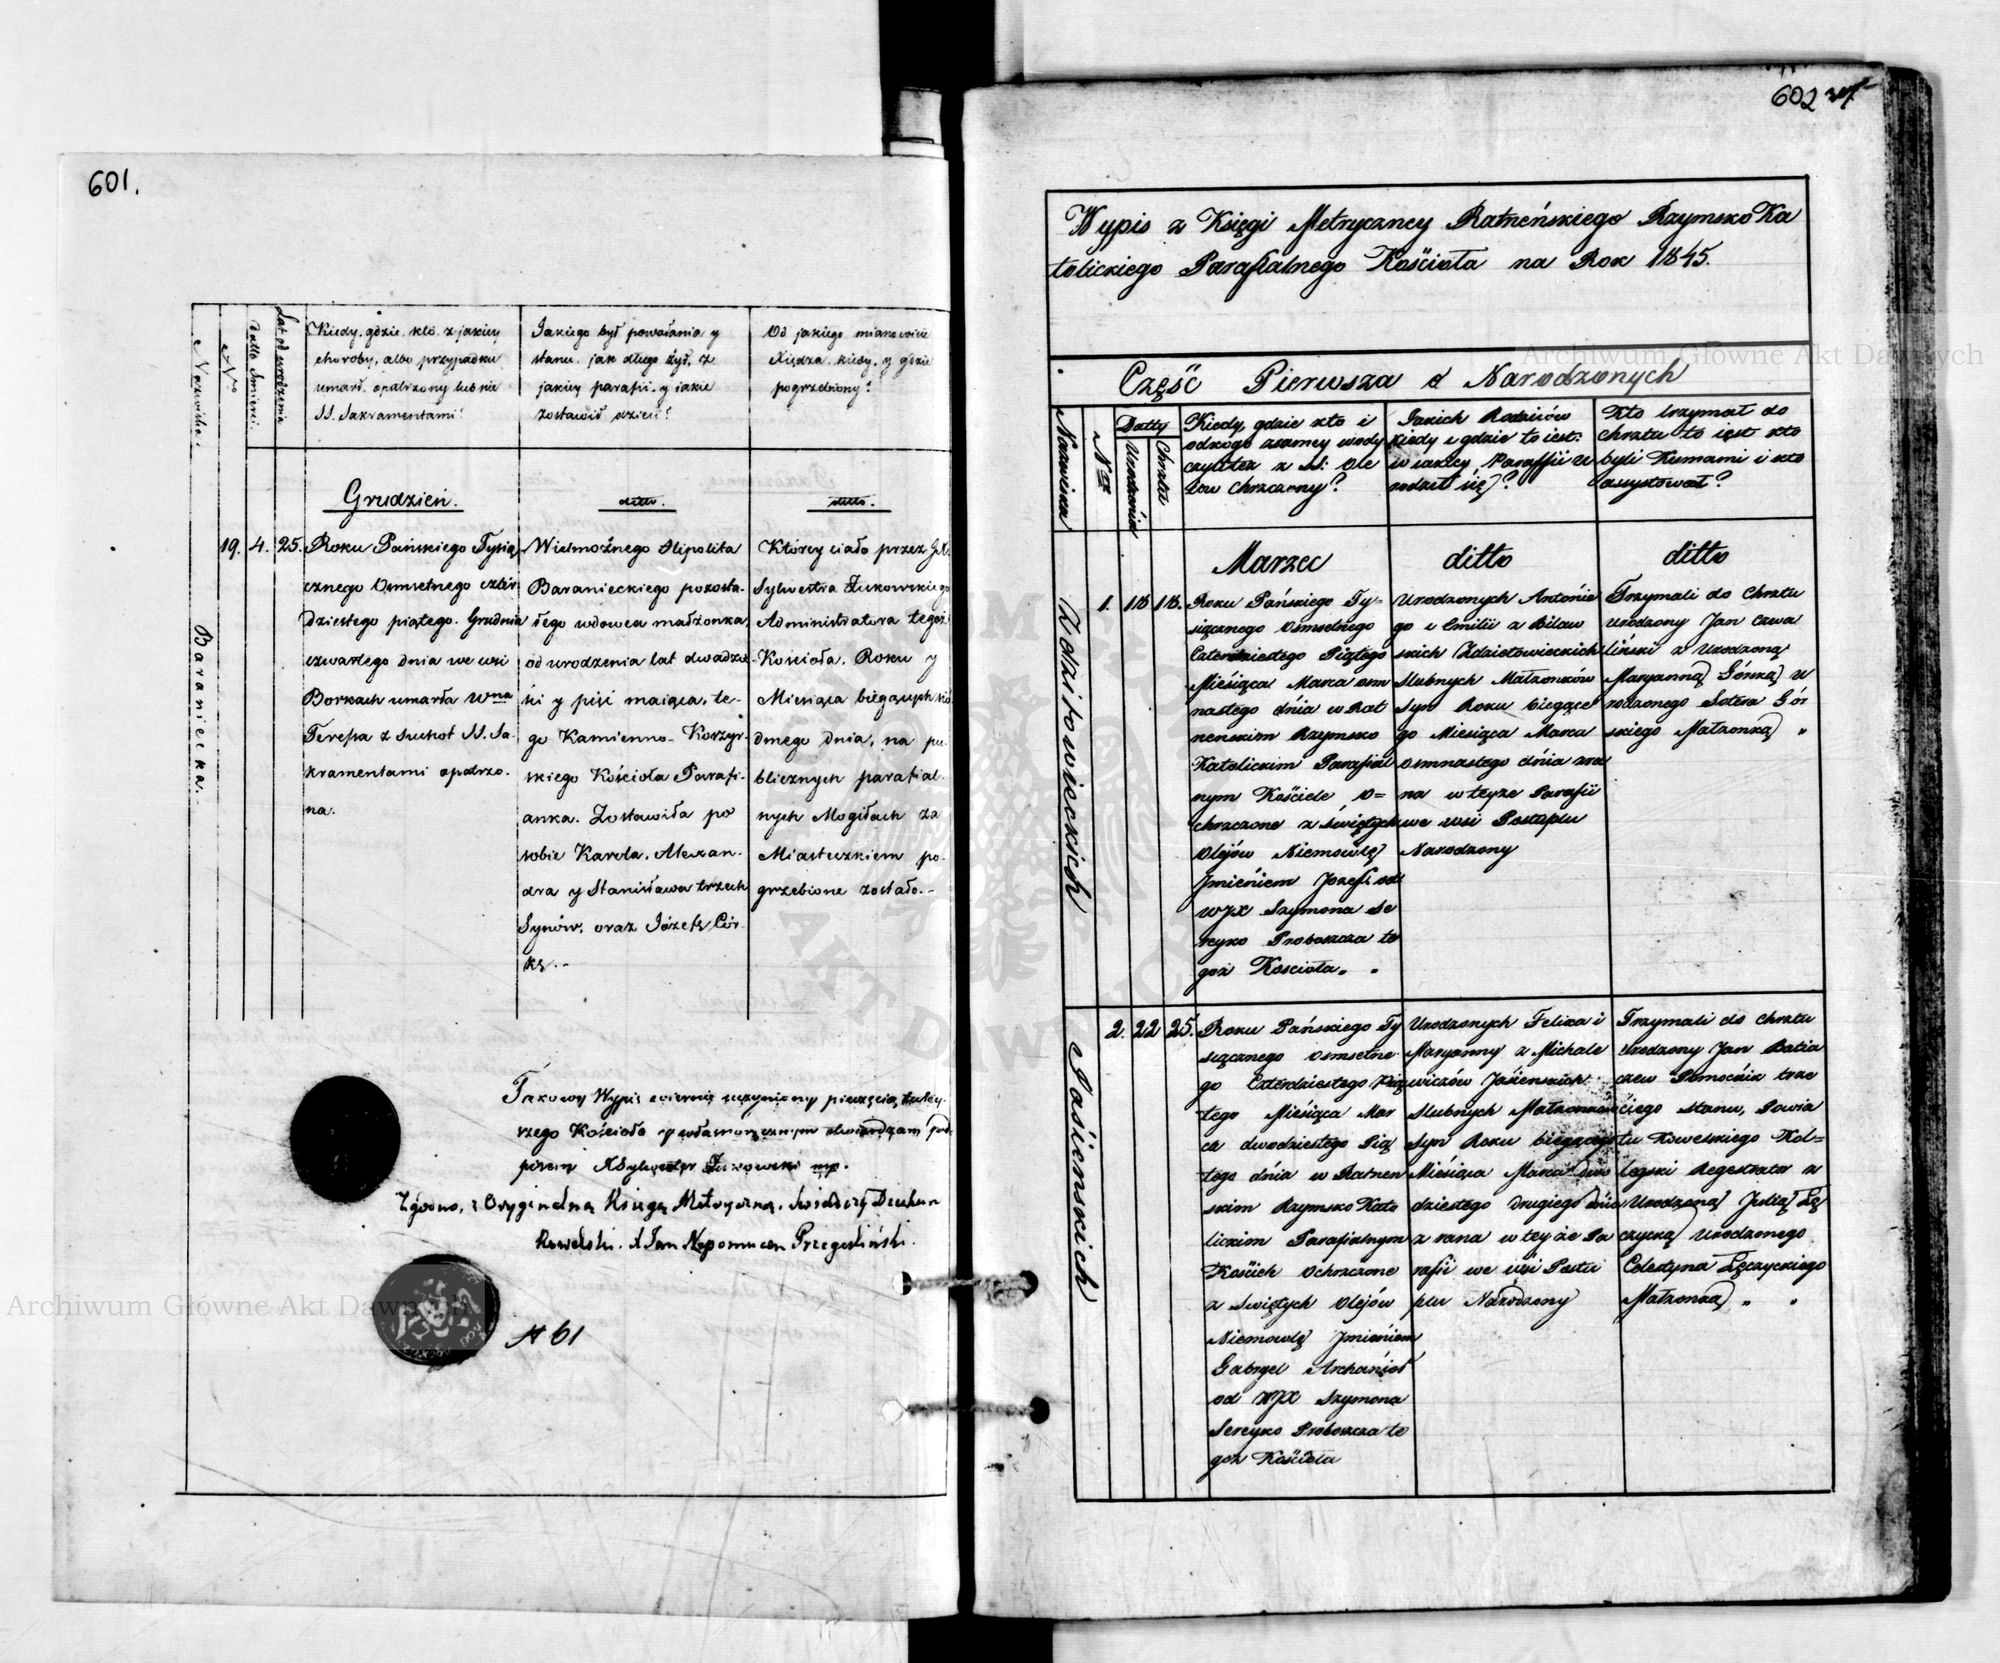 601.
Nazwiska.
N<sup>o</sup>
Datto Smierci.
Lat od urodzenia
Kiedy, gdzie, kto, z jakiey
choroby, albo przypadku
umarł, opatrzony lub nie
SS. Sakramentami?
Jakiego był powołania y
stanu, jak długo żył, z
jakiey parafii, y jakie
zostawił dzieci?
Od jakiego mianowicie
Xiędza, kiedy, y gdzie
pogrzebiony?
Grudzień.
ditto.
ditto.
Baraniecka.
19. 4. 25.
Roku Pańskiego Tysią
cznego Osmsetnego czter
dziestego piątego. Grudnia
czwartego dnia we wsi
Borkach umarła Wna
Teressa z Suchot SS. Sa-
kramentami opatrzo-
na.
Wielmożnego Hipolita
Baranieckiego pozosta-
łego wdowca małżonka,
od urodzenia lat dwadzie-
ści y pięć maiąca, te-
go Kamienno-Korzyr-
skiego Kościoła Parafi-
anka. Zostawiła po
sobie Karola, Alexan-
dra y Stanisława trzech
Synów, oraz Józefę Cór-
kę.-
Którey ciało przez JX.
Sylwestra Żukowskiego
Administratora tegoż
Kościoła, Roku y
Miesiąca bieżących sió-
dmego dnia, na pu-
blicznych parafial-
nych Mogiłach za
Miasteczkiem po-
grzebione zostało.-
Takowy Wypis wiernie uczyniony pieczęcią tutey-
szego Kościoła y własnoręcznym stwierdzam pod-
pisem X Sylwester Żukowski mp.
Zgodno, z Oryginalną Księgą Metryczną, świadczy Dziekan
Kowelski. X Jan Nepomucen Przegaliński.
N 61
602
Wypis z Księgi Metryczney Ratneńskiego Rzymsko Ka
tolickiego Parafialnego Kościoła na Rok 1845.
Część Pierwsza o Narodzonych
Nazwiska
N<sup>er</sup>
Datty
Urodzenia
Chrztu
Kiedy, gdzie kto i
od kogo z samey wody
czyli też z SS: Ole
iów chrzczony?
Jakich Rodziców
kiedy i gdzie to iest:
w iakiey Paraffii u
rodził się?
Kto trzymał do
chrztu to iest kto
byli Kumami i kto
assystował?
Marzec
ditto
ditto
Zdzitowieckich
1. 18 18.
Roku Pańskiego Ty-
siącznego Osmsetnego
Czterdziestego Piątego
Miesiąca Marca osm
nastego dnia w Rat
neńskim Rzymsko
Katolickim Parafial
nym Kościele o=
chrzczone z świętych
Olejów Niemowlę
Jmieniem Jozef od
WJX Szymona Se
reyko Proboszcza te
goż Kościoła.
Urodzonych Antonie
go i Emilii z Bilaw
skich Zdzitowieckich
Slubnych Małżonków
Syn Roku bieżące
go Miesiąca Marca
osmnastego dnia zra
na w teyże Parafii
we wsi Postuplu
Narodzony
Trzymali do chrztu
Urodzony Jan Czwa
liński z Urodzoną
Maryanną Górską U
rodzonego Sotera Gór
skiego Małżonką
Jasieńskich
2. 22 25.
Roku Pańskiego Ty
siącznego Osmsetne
go Czterdziestego Pią
tego Miesiąca Mar
ca dwudziestego Pią
tego dnia w Ratnen
skim Rzymsko Kato
lickim Parafialnym
Kościele Ochrzczone
z świętych Olejów
Niemowlę Jmieniem
Gabryel Archanioł
od WJX Szymona
Sereyko Proboszcza te
goż Kościoła
Urodzonych Felixa i
Maryanny z Michale
wiczów Jasieńskich
Slubnych Małżonków
Syn Roku bieżącego
Miesiąca Marca dwu
dziestego Drugiego dnia
z rana w teyże Pa
rafii we wsi Postu
plu Narodzony
Trzymali do chrztu
Urodzony Jan Batia
czew Pomocnik trze
ciego Stanu, Powia
tu Kowelskiego Kol=
legski Regestrator z
Urodzoną Julią Łę
czycką Urodzonego
Celestyna Łęczyckiego
Małżonką
Archiwum Główne Akt Dawnych
Archiwum Główne Akt Dawnych